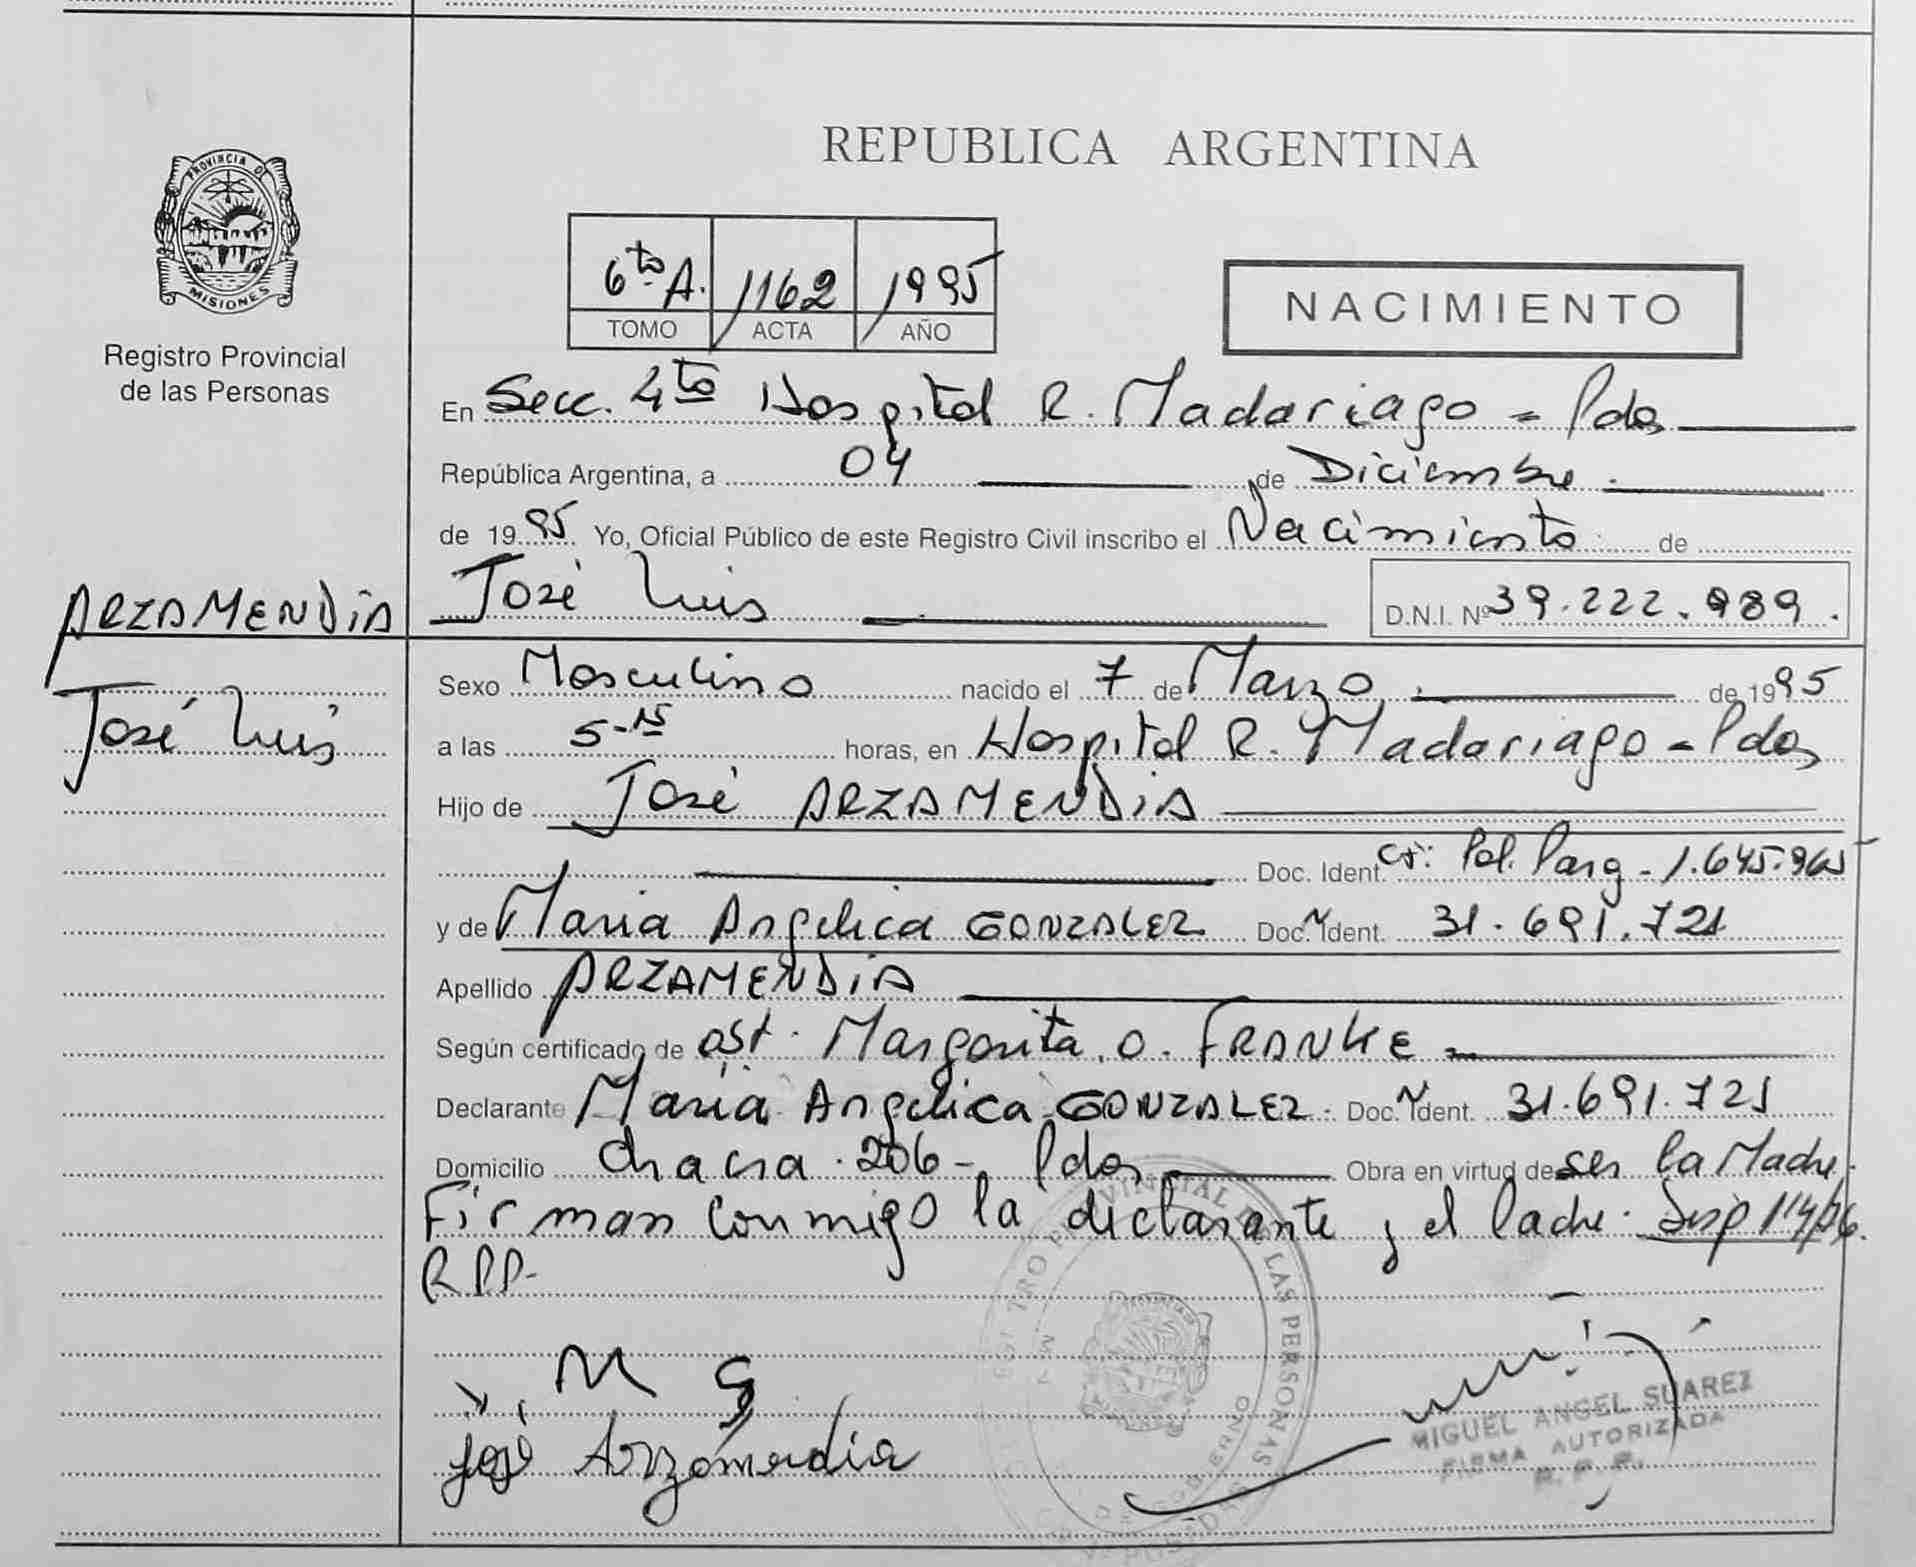 PROVINCIA DE
MISIONES
Registro Provincial
de las Personas
REPUBLICA ARGENTINA
6to A. 1162 1995
TOMO ACTA AÑO
NACIMIENTO
En Secc. 4to Hospital R. Madariaga - Pdas
República Argentina, a 04 de Diciembre
de 1995 Yo, Oficial Público de este Registro Civil inscribo el Nacimiento de
ARZAMENDiA José Luis D.N.I. Nº 39.222.989.
José Luis
Sexo Masculino nacido el 7 de Marzo de 1995
a las 5-15 horas, en Hospital R. Madariaga - Pdas
Hijo de José ARZAMENDiA
Doc. Ident. CI: Pol. Parg - 1.645.965
y de Maria Angelica GONZALEZ Doc. Ident. 31.691.721
Apellido ARZAMENDiA
Según certificado de Obst. Margarita O. FRANKE
Declarante Maria Angelica GONZALEZ Doc. Ident. 31.691.721
Domicilio Chacra 206 - Pdas Obra en virtud de ser la Madre.
Firman conmigo la declarante y el Padre. Disp 114/96.
RPP-
M G
José Arzamendia
REGISTRO PROVINCIAL DE LAS PERSONAS
MIGUEL ANGEL SUAREZ
FIRMA AUTORIZADA
R. P. P.